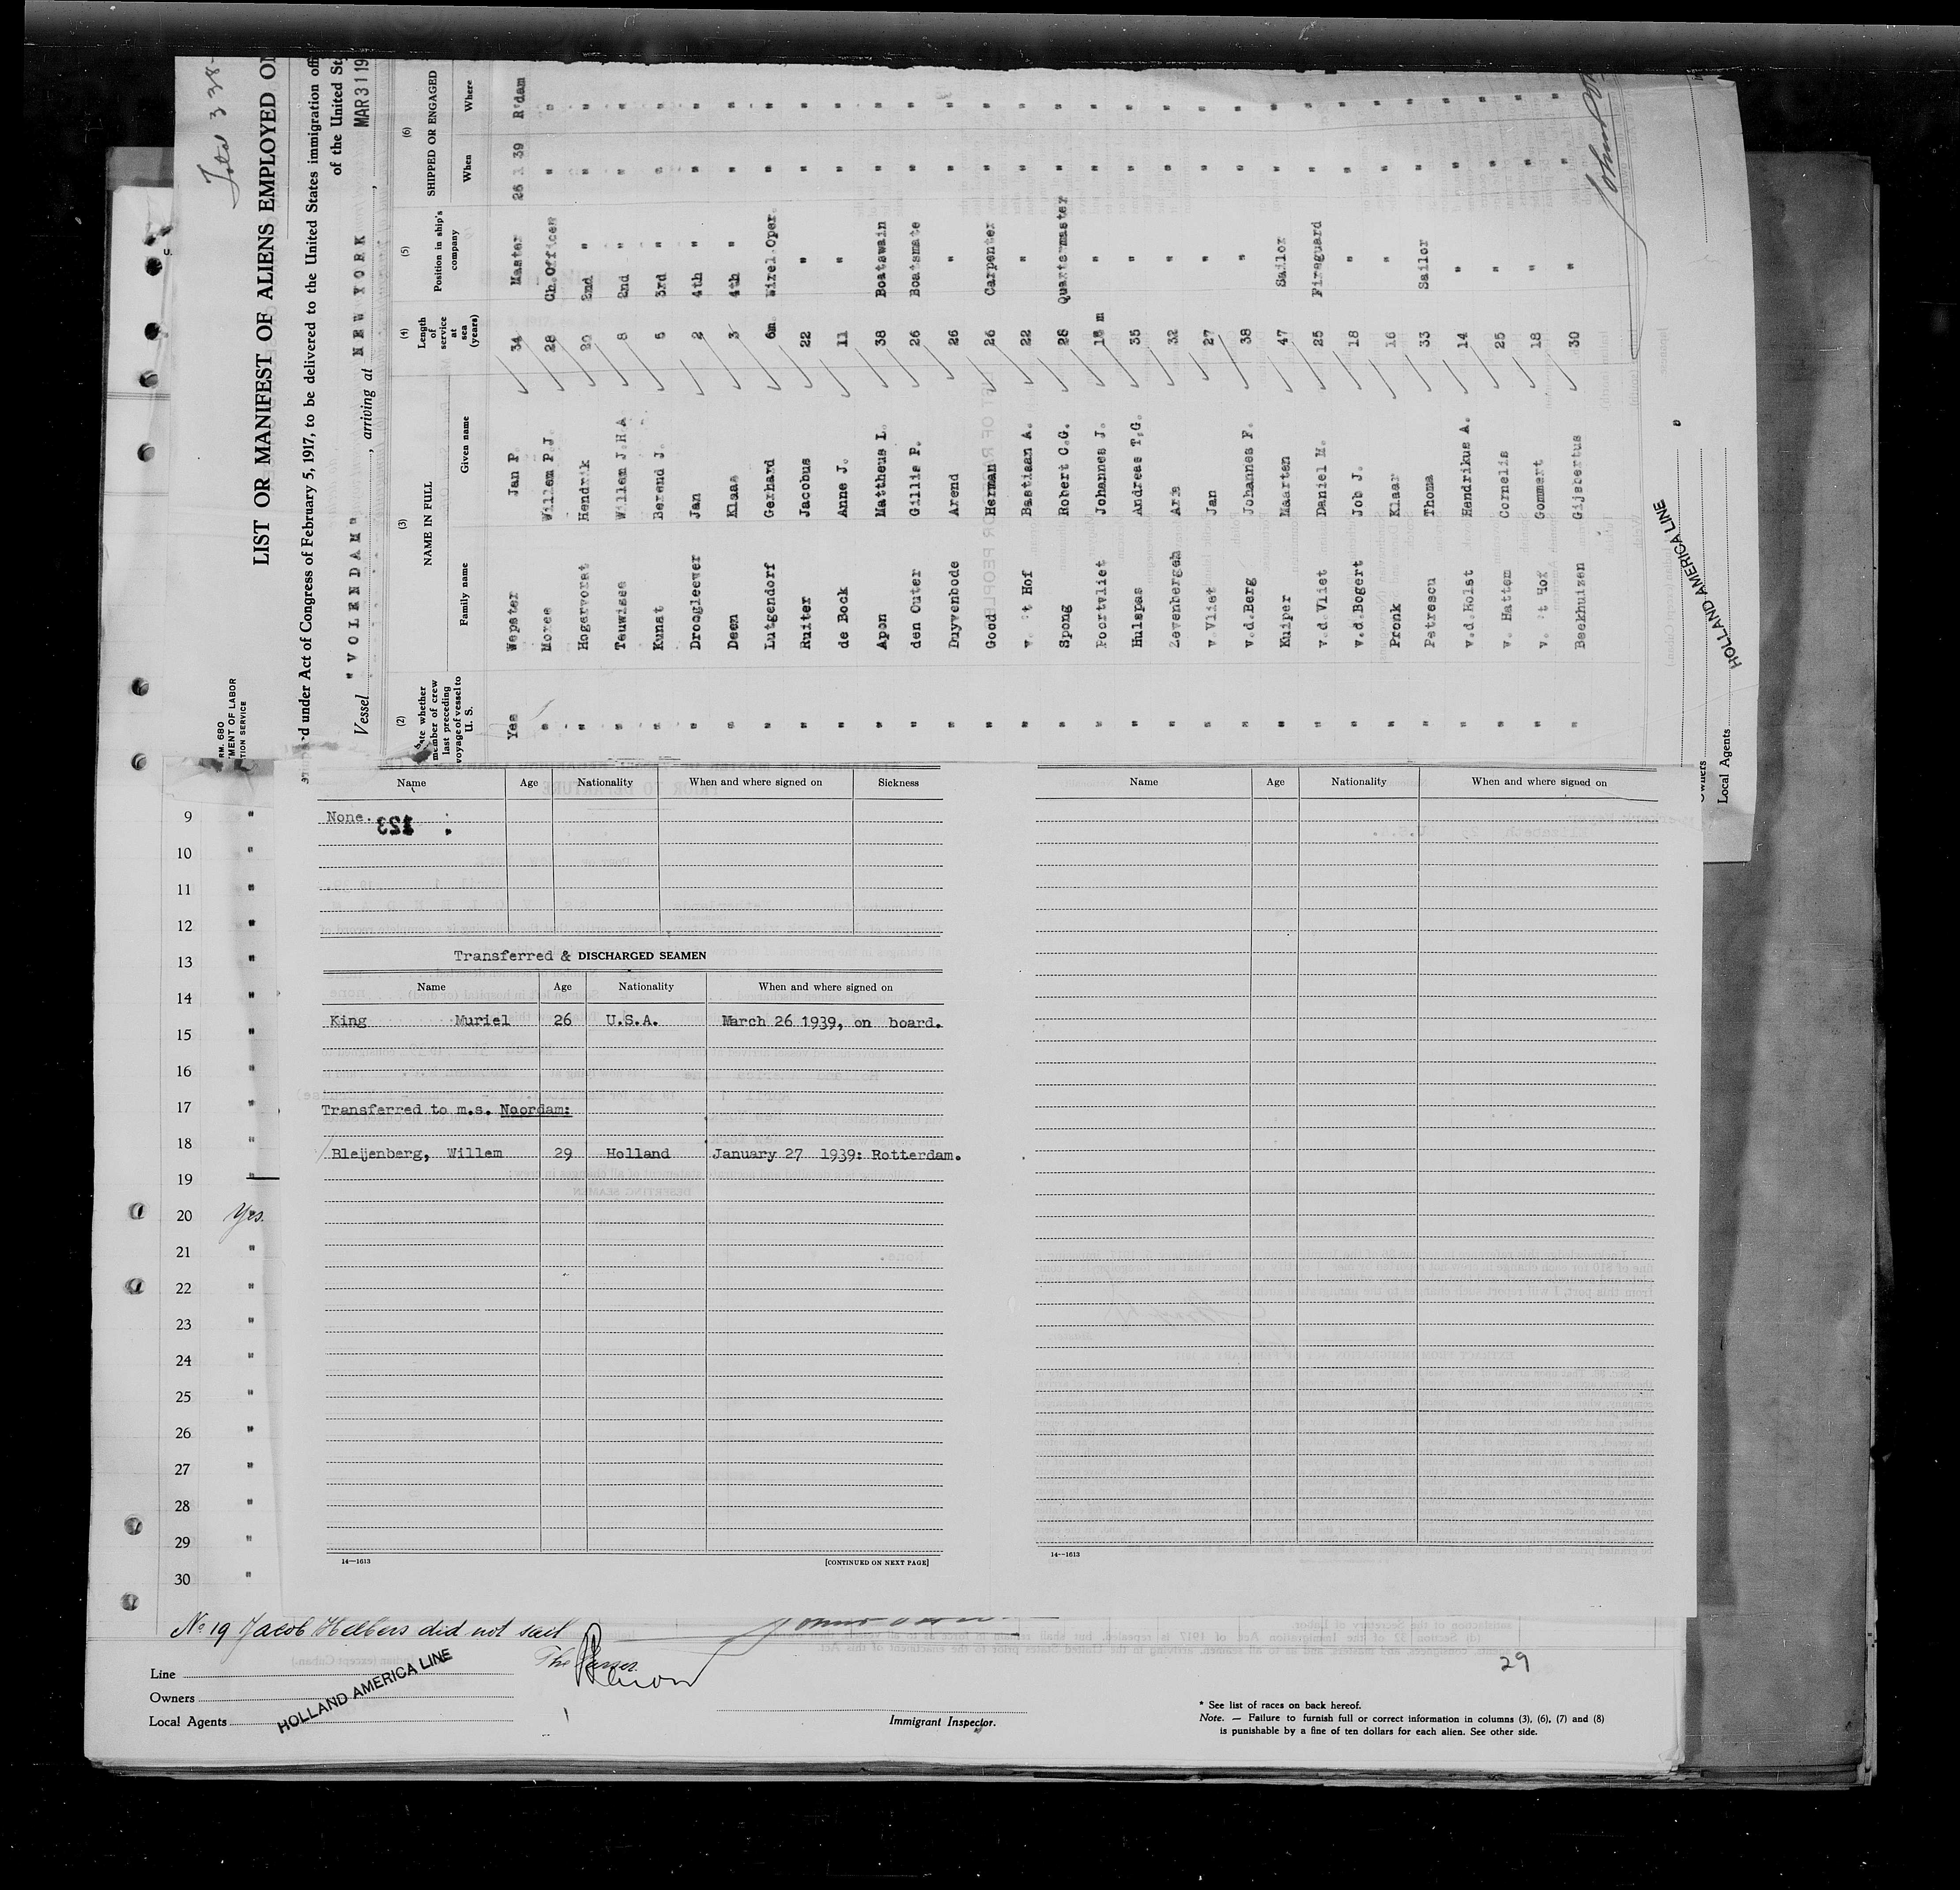 Total 338-
LIST OR MANIFEST OF ALIENS EMPLOYED ON
under Act of Congress of February 5, 1917, to be delivered to the United States immigration
of the United
Vessel "VOLENDAM", arriving at NEW YORK, MAR 31 19
(2) (3) (4) (5) (6)
NAME IN FULL SHIPPED OR ENGAGED
member of crew last preceding voyage of vessel to U. S. Family name Given name Length of service at sea (years) Position in ship's company When Where
Yes Wepster Jan P. 34 Master 26 1 39 R'dam
" Moree Willem P.J. 28 Ch.Officer " "
" Hogervorst Hendrik 20 2nd " " "
" Teuwisse Willem J.H.A 8 2nd " " "
" Kunst Berend J. 5 3rd " " "
" Droogleever Jan 2 4th " " "
" Deen Klaas 3 4th " " "
" Lutgendorf Gerhard 6m. Wirel.Oper. " "
" Ruiter Jacobus 22 " " "
" de Bock Anne J. 11 " " "
" Apon Mattheus L. 38 Boatswain " "
" den Outer Gillis P. 26 Boatsmate " "
" Duyvenbode Arend 26 " " "
" Good Herman 26 Carpenter " "
" v. 't Hof Bastiaan A. 22 " " "
" Spong Robert C.G. 28 Quartermaster " "
" Poortvliet Johannes J. 18 m " " "
" Hulspas Andreas T.G. 35 " " "
" Zevenbergen Arie 32 " " "
" v.Vliet Jan 27 " " "
" v.d.Berg Johannes F. 38 " " "
" Kuiper Maarten 47 Sailor " "
" v.d.Vliet Daniel M. 25 Fireguard " "
" v.d.Bogert Job J. 18 " " "
" Pronk Klaar 16 " " "
" Petrescu Thoma 33 Sailor " "
" v.d.Holst Hendrikus A. 14 " " "
" v. Hattem Cornelis 25 " " "
" v. 't Hof Gommert 18 " " "
" Baekhuizen Gijsbertus 30 " " "
Owners
Local Agents
HOLLAND AMERICA LINE
RM. 680
MENT OF LABOR
TION SERVICE
Name Age Nationality When and where signed on Sickness
None.
123
Transferred & DISCHARGED SEAMEN
Name Age Nationality When and where signed on
King Muriel 26 U.S.A. March 26 1939, on board.
Transferred to m.s. Noordam:
Bleijenberg, Willem 29 Holland January 27 1939: Rotterdam.
14—1613 [CONTINUED ON NEXT PAGE]
Name Age Nationality When and where signed on
14—1613
9 "
10 "
11 "
12 "
13 "
14 "
15 "
16 "
17 "
18 "
19
20 Yes.
21 "
22 "
23 "
24 "
25 "
26 "
27 "
28 "
29 "
30 "
No 19 Jacob Helbers did not sail
The Purser
29
Line
Owners
Local Agents
HOLLAND AMERICA LINE
Immigrant Inspector.
* See list of races on back hereof.
Note. — Failure to furnish full or correct information in columns (3), (6), (7) and (8)
is punishable by a fine of ten dollars for each alien. See other side.